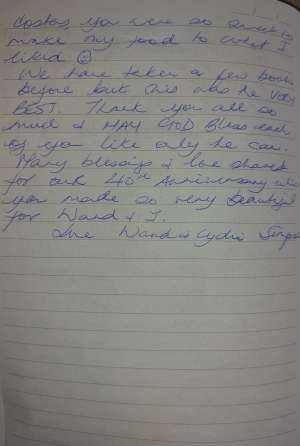 Costas you were so sweet to
make my food to what I
liked ☺
We have taken a few boats
before but this was the very
BEST. Thank you all so
much & MAY GOD Bless each
of you like only he can.
Many blessings & love shared
for our 40th Anniversary which
you made so very beautiful
for Ward & I.
Love Ward & Lydia